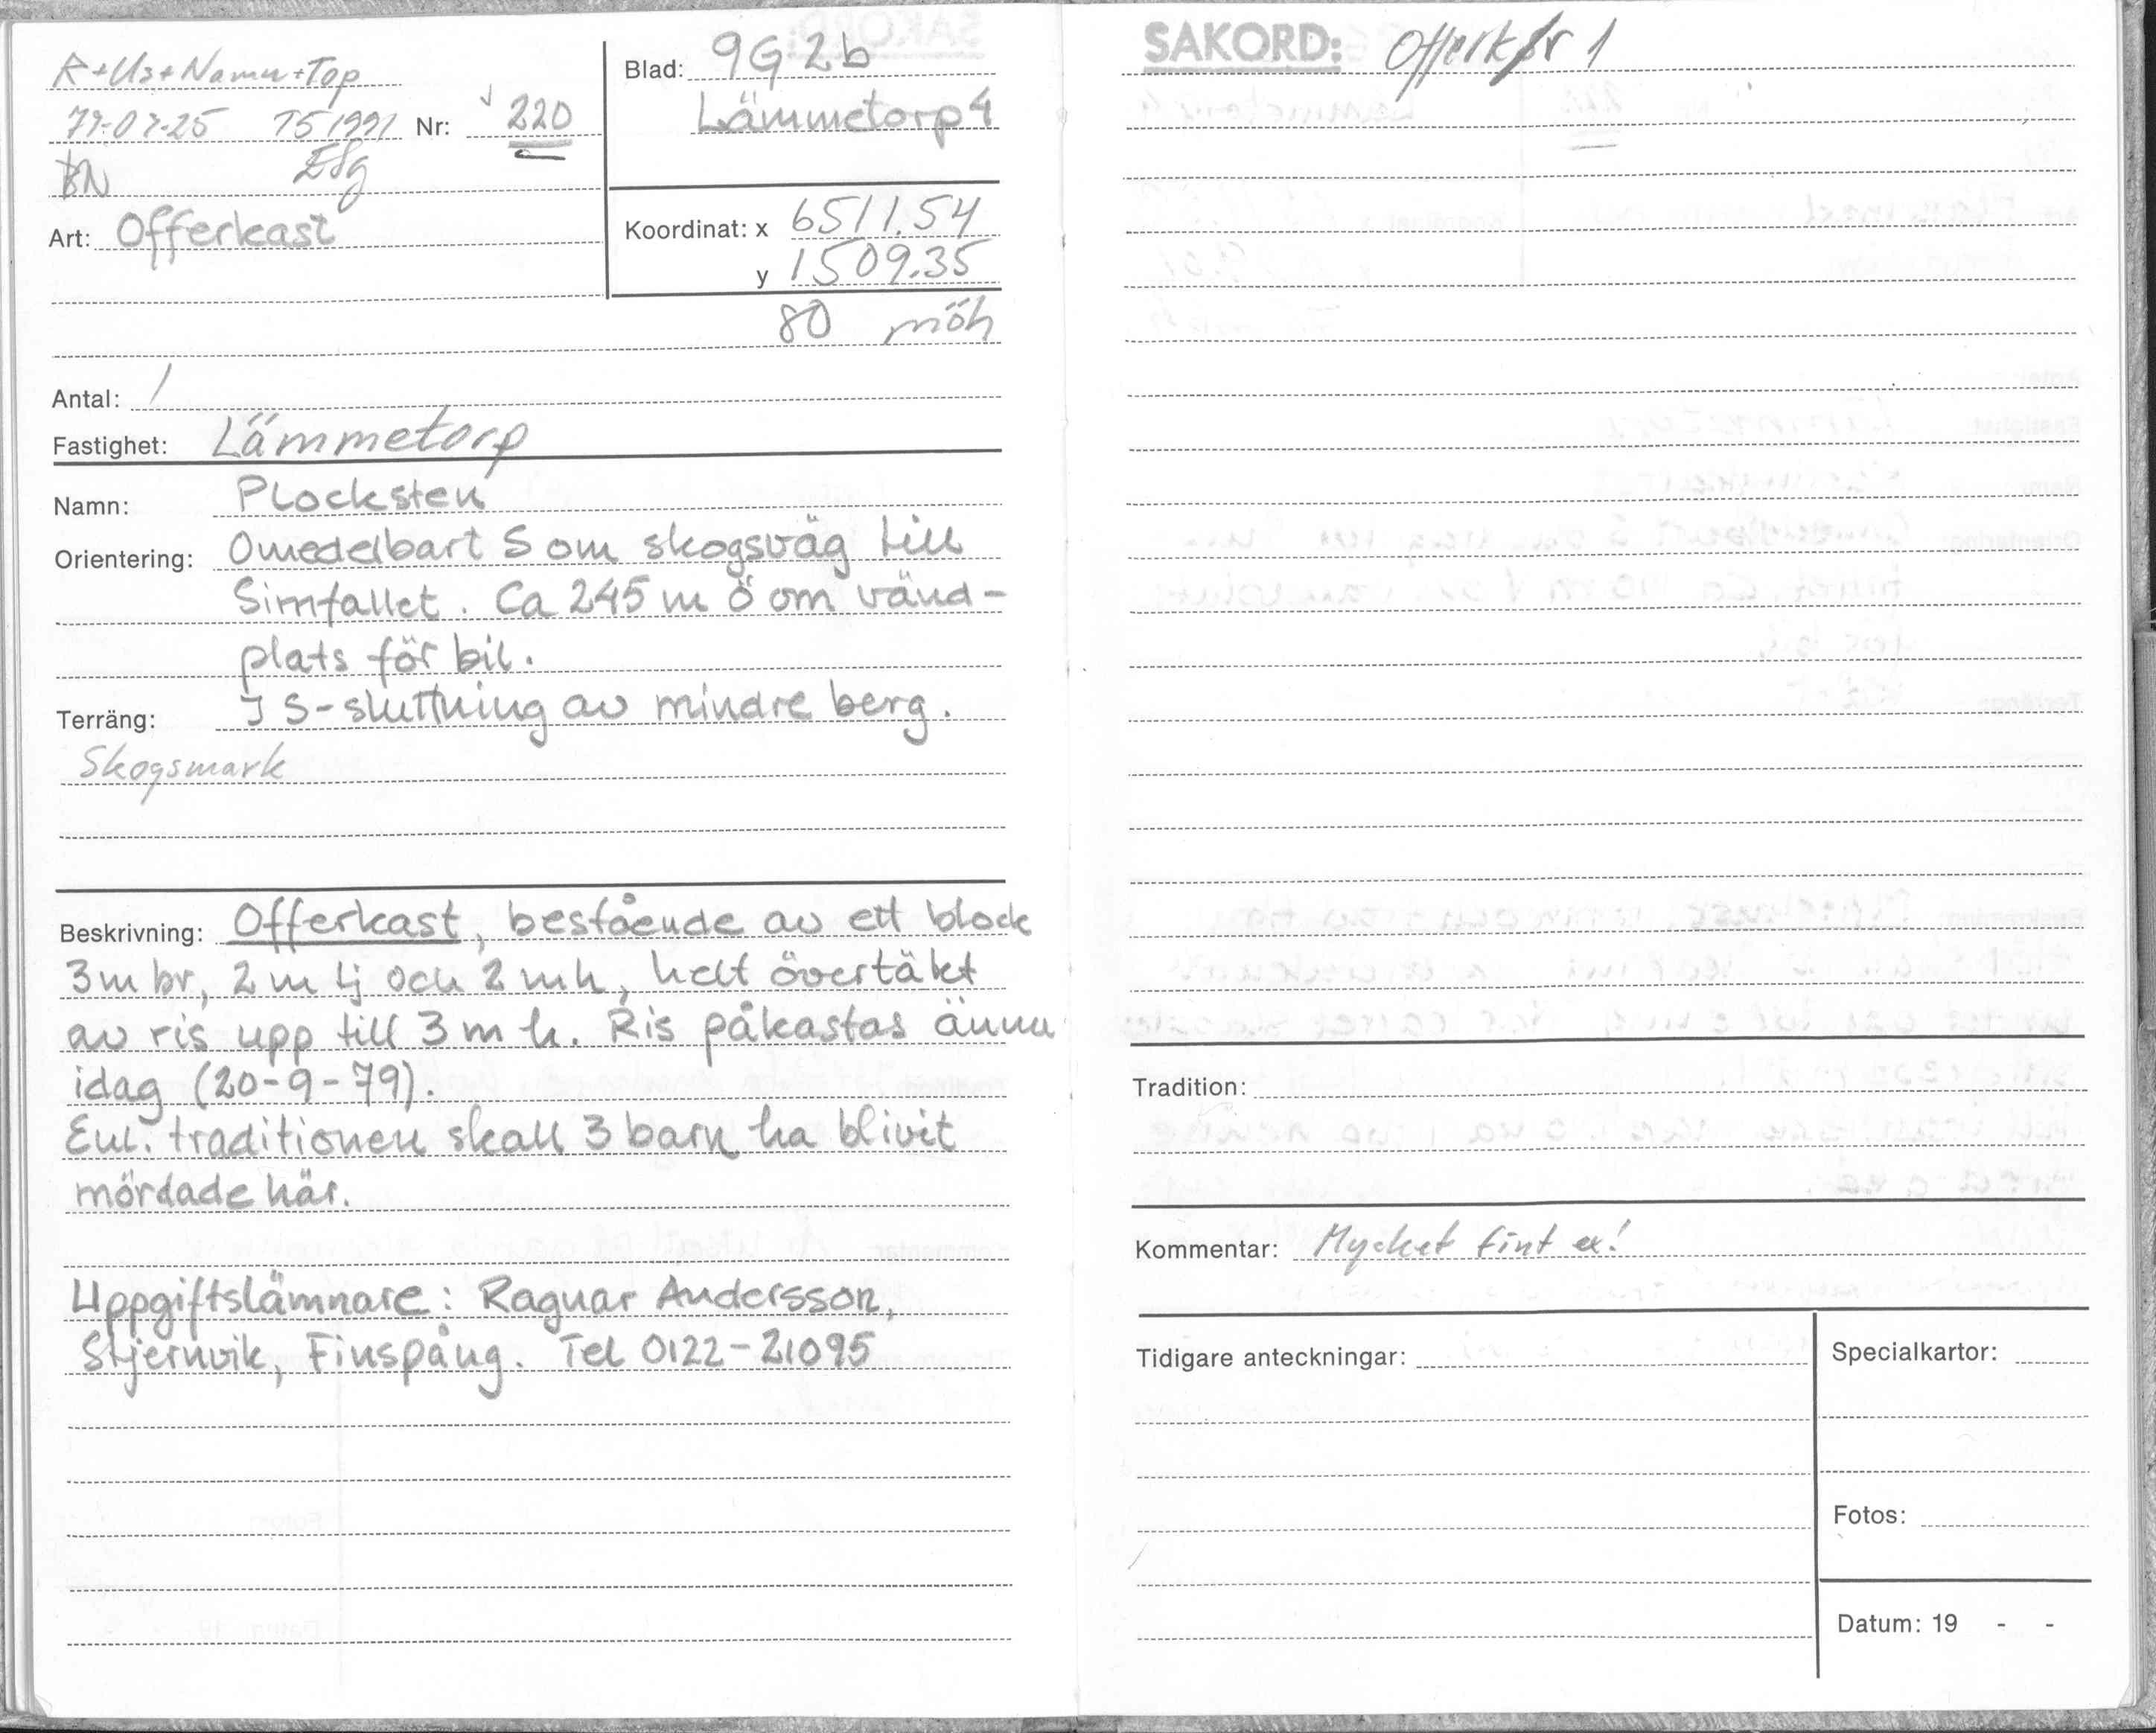 R+Us+Namn+Top
79-07-25 TS 1991 Nr: 220
BN
Art: Offerkast
Blad: 9G 2b
Lämmetorp 4
Koordinat: x 6511.54
y 1509.35
80 möh
Antal: 1
Fastighet: Lämmetorp
Namn: Plocksten
Orientering: Omedelbart S om skogsväg till
Simfallet. Ca 245 m Ö om vänd-
plats för bil.
Terräng: I S-sluttning av mindre berg.
Skogsmark
Beskrivning: Offerkast, bestående av ett block
3 m br, 2 m lj och 2 m h, helt övertäkt
av ris upp till 3 m h. Ris påkastas ännu
idag (20-9-79).
Enl. traditionen skall 3 barn ha blivit
mördade här.
Uppgiftslämnare: Ragnar Andersson,
Stjernvik, Finspång. Tel 0122-21095
SAKORD: Offerk/r 1
Tradition:
Kommentar: Mycket fint ex!
Tidigare anteckningar:
Specialkartor:
Fotos:
Datum: 19 - -